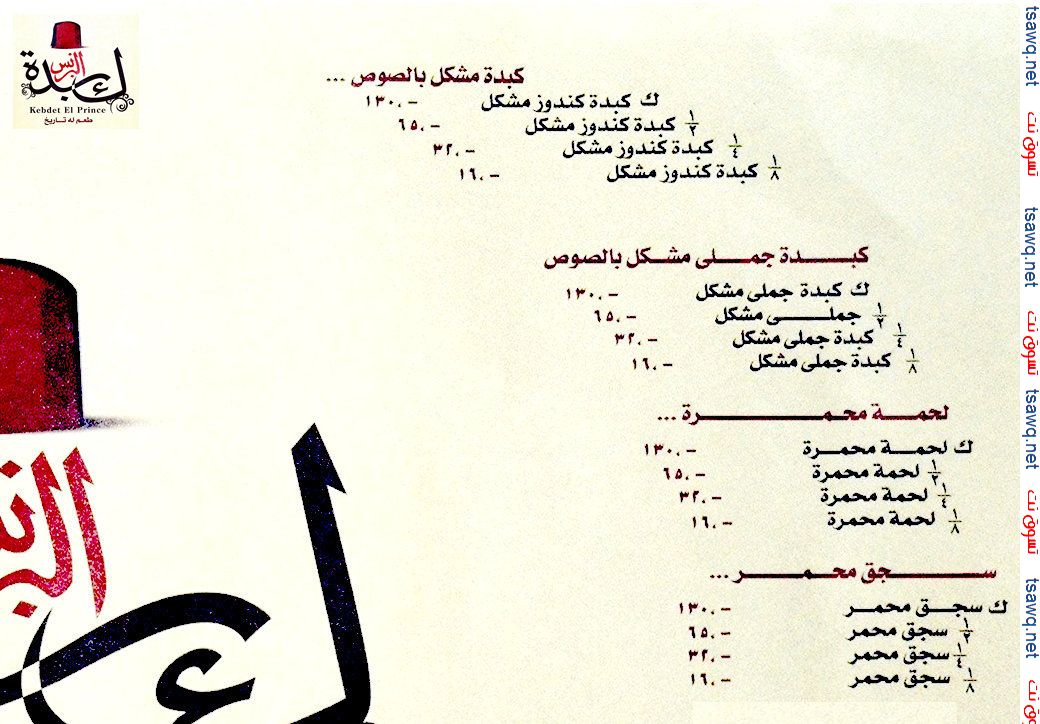 كبدة البرنس
Kebdet El Prince
طعم له تاريخ
كبدة مشكل بالصوص ...
ك كبدة كندوز مشكل ١٣٠,-
½ كبدة كندوز مشكل ٦٥,-
¼ كبدة كندوز مشكل ٣٢,-
⅛ كبدة كندوز مشكل ١٦,-
كبـــدة جمـــلى مشـكل بالصوص
ك كبدة جملى مشكل ١٣٠,-
½ جملـــى مشكل ٦٥,-
¼ كبدة جملى مشكل ٣٢,-
⅛ كبدة جملى مشكل ١٦,-
لحمـــة محمـــــــرة ...
ك لحمـــة محمـــرة ١٣٠,-
½ لحمة محمرة ٦٥,-
¼ لحمة محمرة ٣٢,-
⅛ لحمة محمرة ١٦,-
ســـــــجق محـمـــــر ...
ك سجـــق محمــر ١٣٠,-
½ سجق محمر ٦٥,-
¼ سجق محمر ٣٢,-
⅛ سجق محمر ١٦,-
tsawq.net
تسوق نت
tsawq.net
تسوق نت
tsawq.net
تسوق نت
tsawq.net